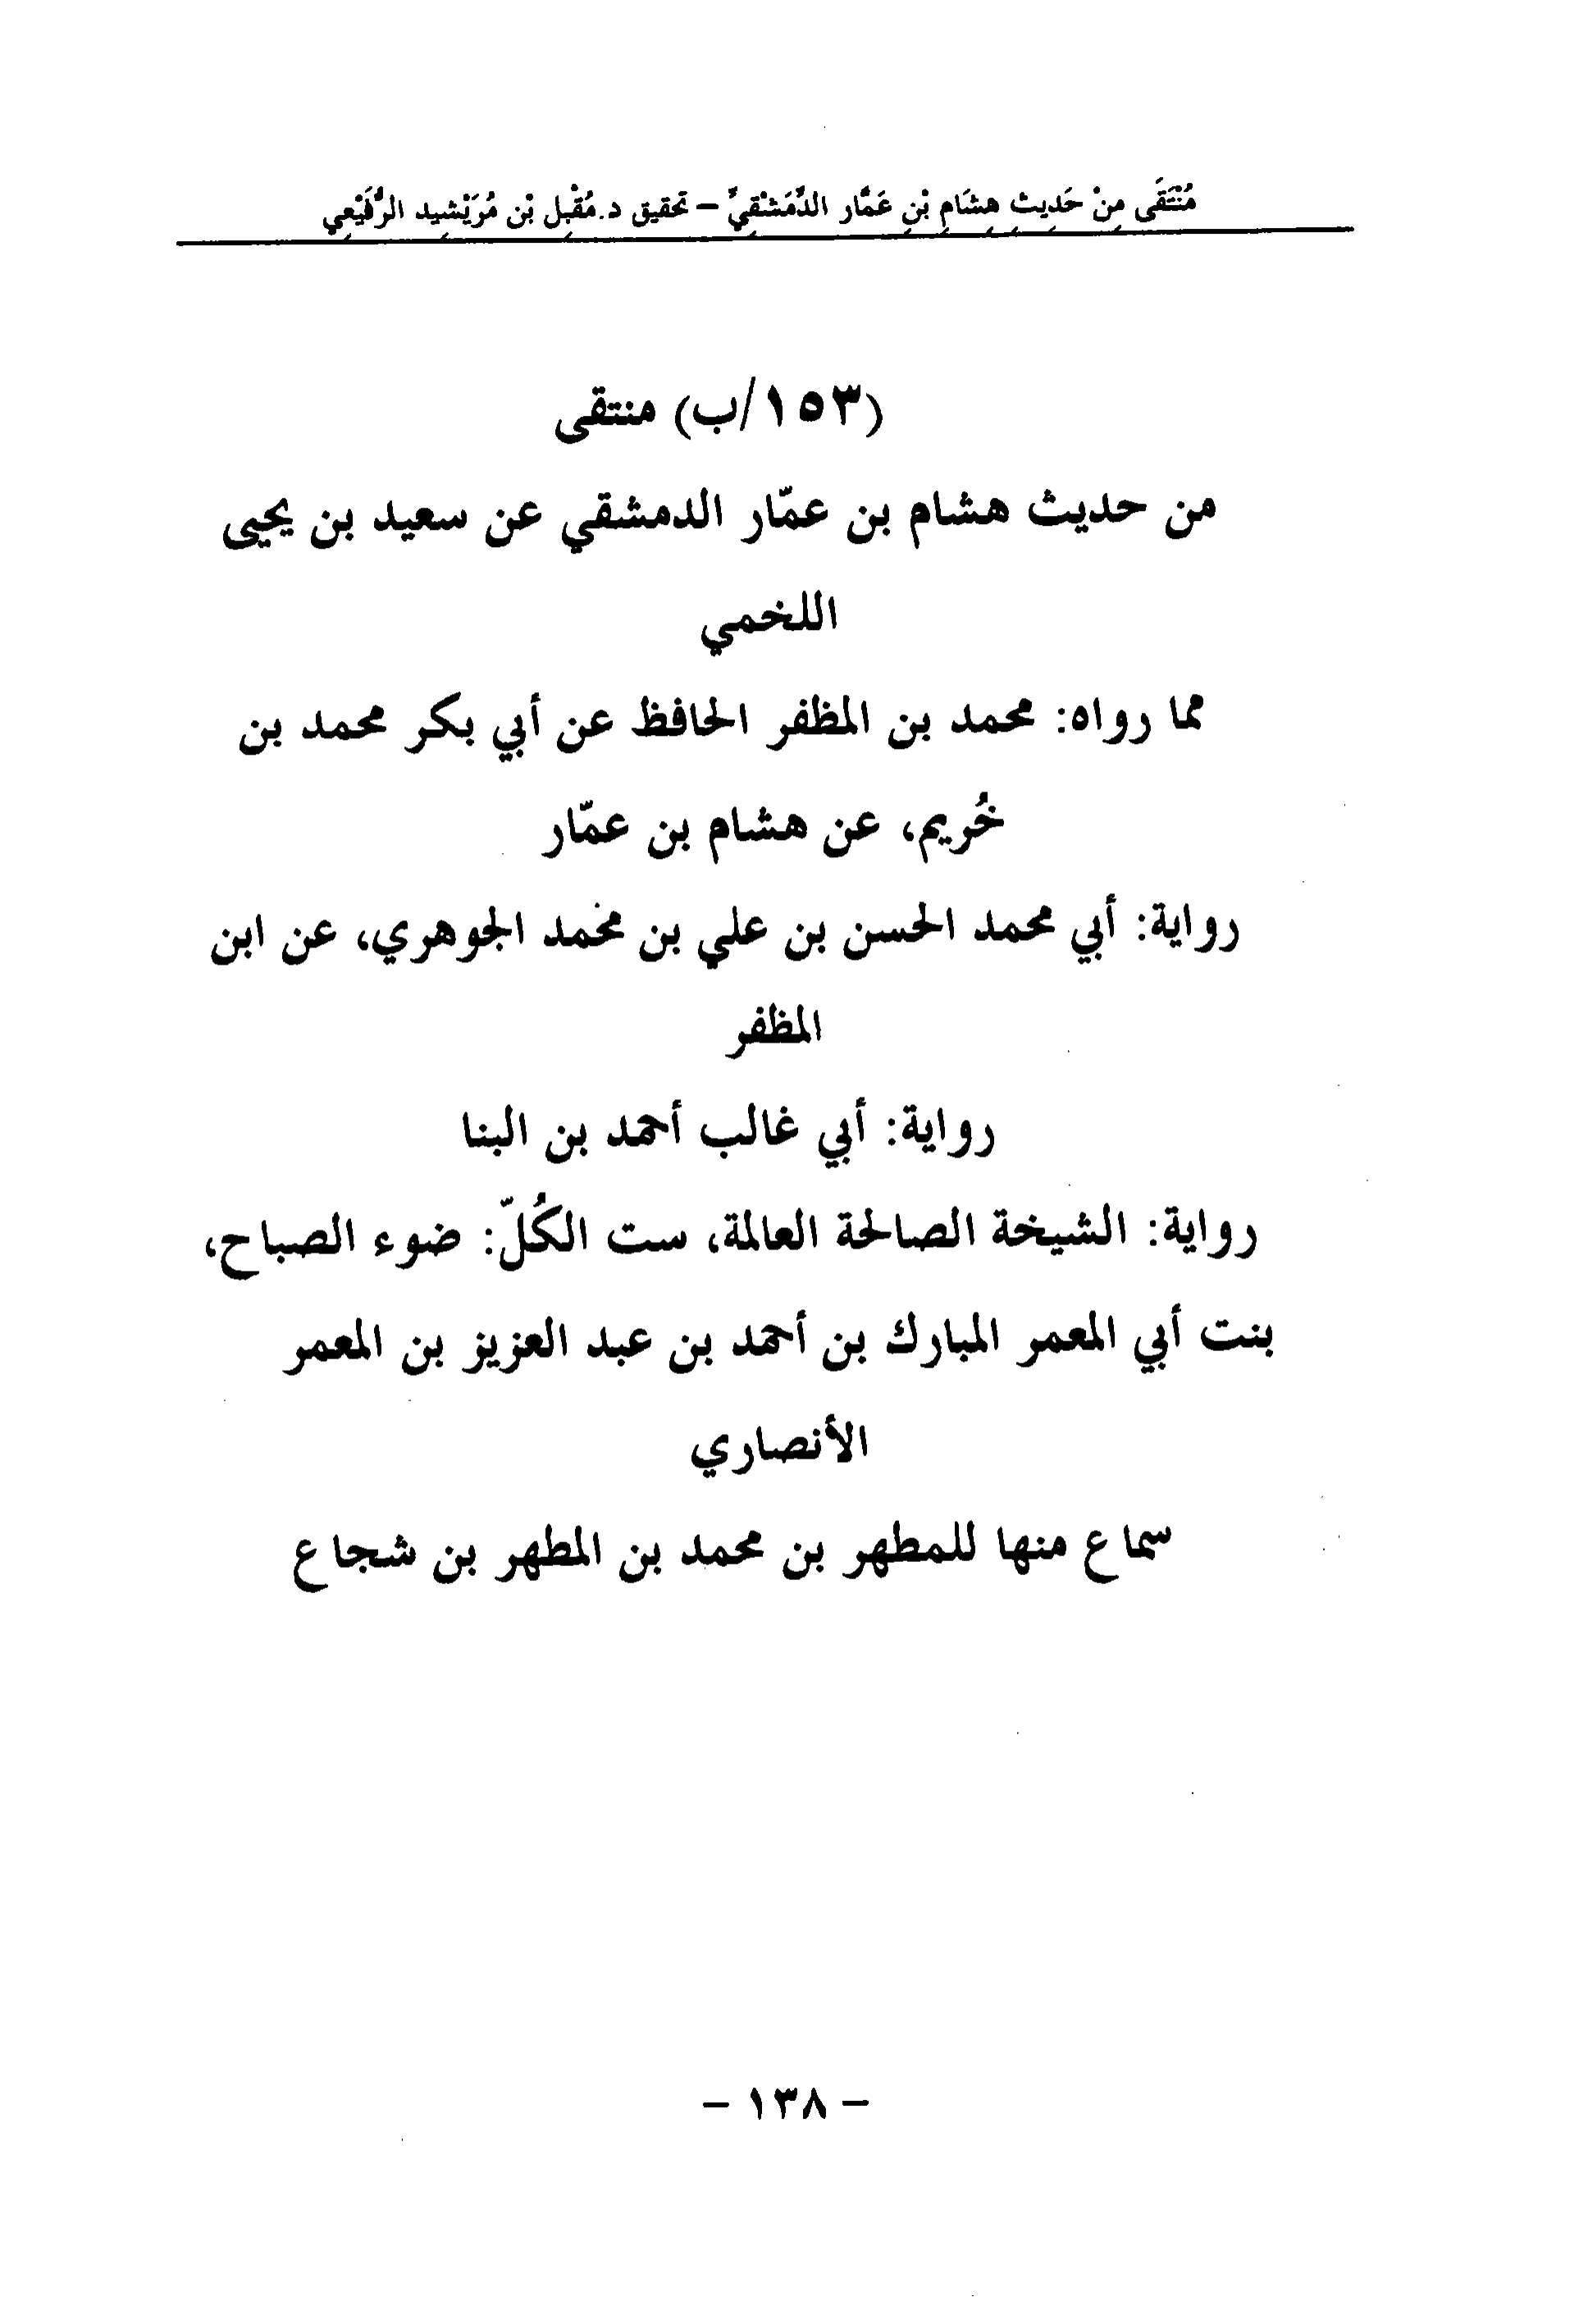 مُنْتَقَى مِنْ حَدِيثِ هِشَامِ بْنِ عَمَّار الدِّمَشْقِيِّ – تحقيق د. مُقْبِل بْن مُرَيْشِيد الرُّفَيْعِي
(١٥٣/ب) منتقى
من حديث هشام بن عمّار الدمشقي عن سعيد بن يحيى
اللخمي
مما رواه: محمد بن المظفر الحافظ عن أبي بكر محمد بن
خُريم، عن هشام بن عمّار
رواية: أبي محمد الحسن بن علي بن محمد الجوهري، عن ابن
المظفر
رواية: أبي غالب أحمد بن البنا
رواية: الشيخة الصالحة العالمة، ست الكُلّ: ضوء الصباح،
بنت أبي المعمر المبارك بن أحمد بن عبد العزيز بن المعمر
الأنصاري
سماع منها للمطهر بن محمد بن المطهر بن شجاع
– ١٣٨ –